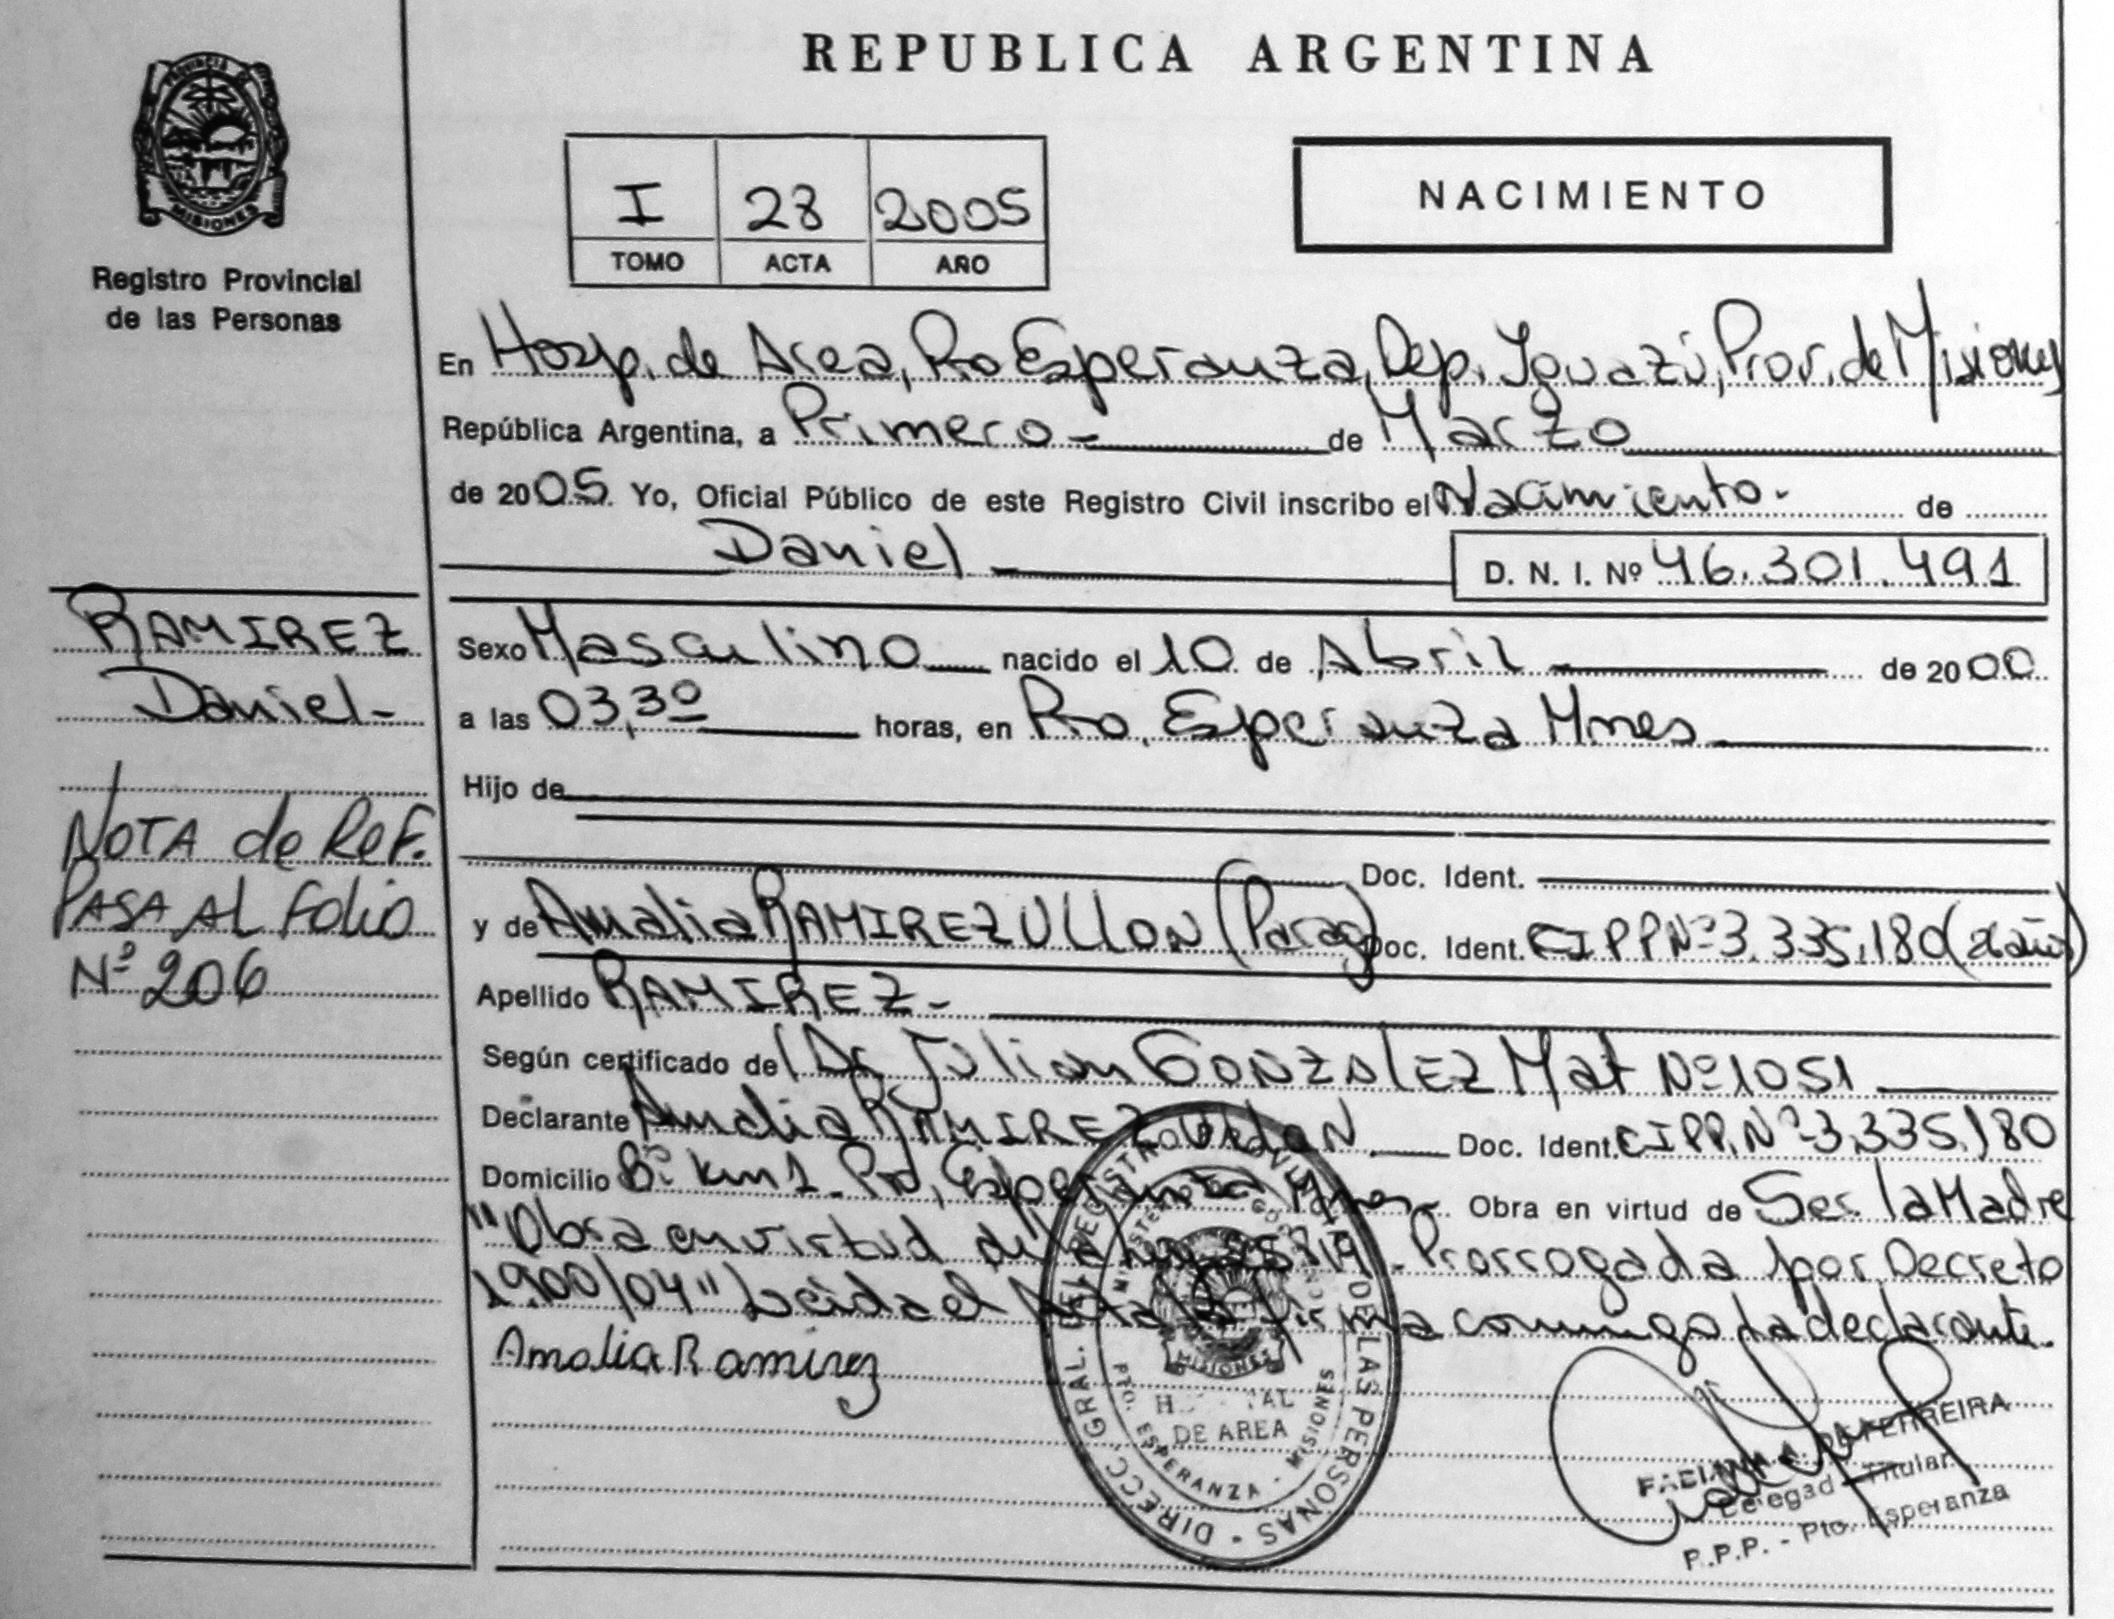 REPUBLICA ARGENTINA
PROVINCIA DE
MISIONES
Registro Provincial
de las Personas
I 28 2005
TOMO ACTA AÑO
NACIMIENTO
En Hosp. de Area, Pto Esperanza, Dep. Iguazú, Prov. de Misiones
República Argentina, a Primero - de Marzo
de 2005. Yo, Oficial Público de este Registro Civil inscribo el Nacimiento - de
Daniel D. N. I. Nº 46.301.491
RAMIREZ
Daniel -
NOTA de Ref.
PASA AL folio
Nº 206
Sexo Masculino nacido el 10 de Abril de 2000
a las 03,30 horas, en Pto. Esperanza Mnes
Hijo de
Doc. Ident.
y de Amalia RAMIREZ ULLON (Parag) Doc. Ident. CIPP Nº 3.335.180 (años)
Apellido RAMIREZ -
Según certificado de Dr Julian GONZALEZ Mat Nº 1051
Declarante Amalia RAMIREZ ULLON Doc. Ident. CIPP. Nº 3.335.180
Domicilio Bº Km 1 - Pto, Esperanza Mnes - Obra en virtud de Ser la Madre
"Obra en virtud de la Ley 25819 - Prorrogada por Decreto
1900/04" Leida el Acta la firma conmigo la declarante.
Amalia Ramirez
DIRECC. GRAL. DEL REGISTRO PROVINCIAL DE LAS PERSONAS
MISIONES
DE AREA
PTO. ESPERANZA - MISIONES
FERREIRA
Titular
P.P.P. - Pto. Esperanza